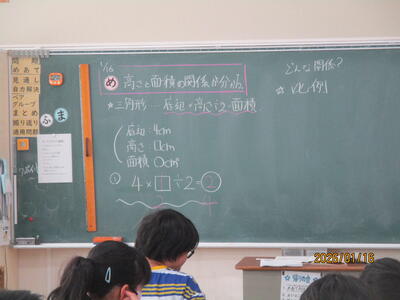 1/16
め 高さと面積の関係が分かる。
☆三角形… 底辺×高さ÷2=面積
底辺:4cm
高さ:□cm
面積:○cm²
① 4×□÷2=②
どんな関係?
☆ 比例
問題
めあて
見通し
自力解決
ペア
グループ
まとめ
振り返り
適用問題
ふ
ま
2026/01/16